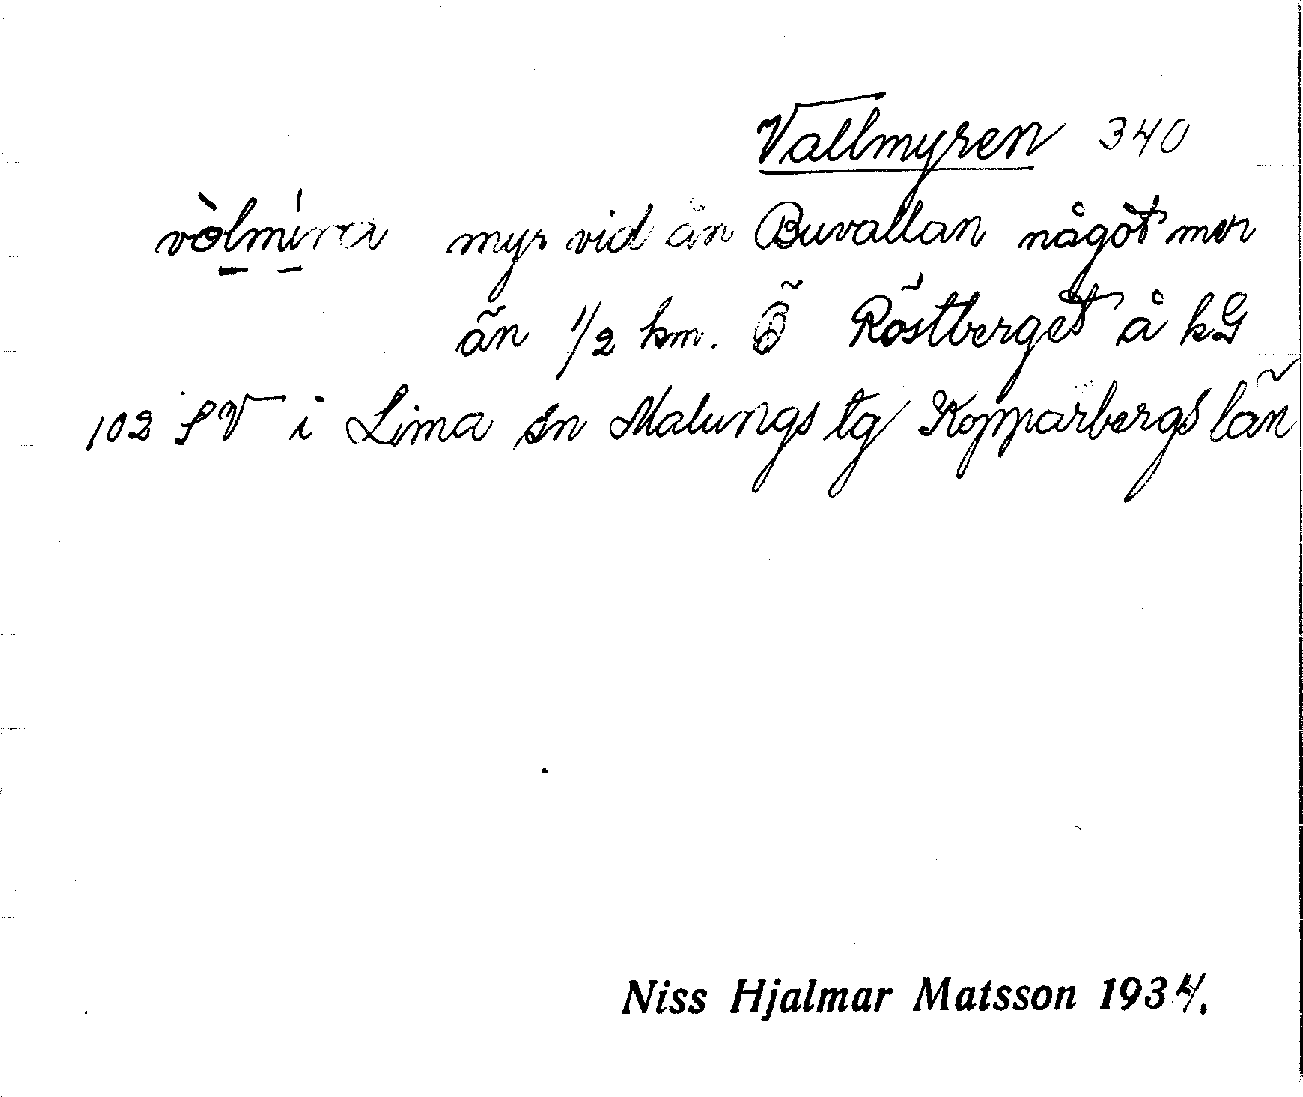 Vallmyren 340
vòlmíra myr vid ån Buvallan något mer
än 1/2 km. Ö Röstberget å kG
102 SV i Lima sn Malungs tg Kopparbergs län
Niss Hjalmar Matsson 1934.